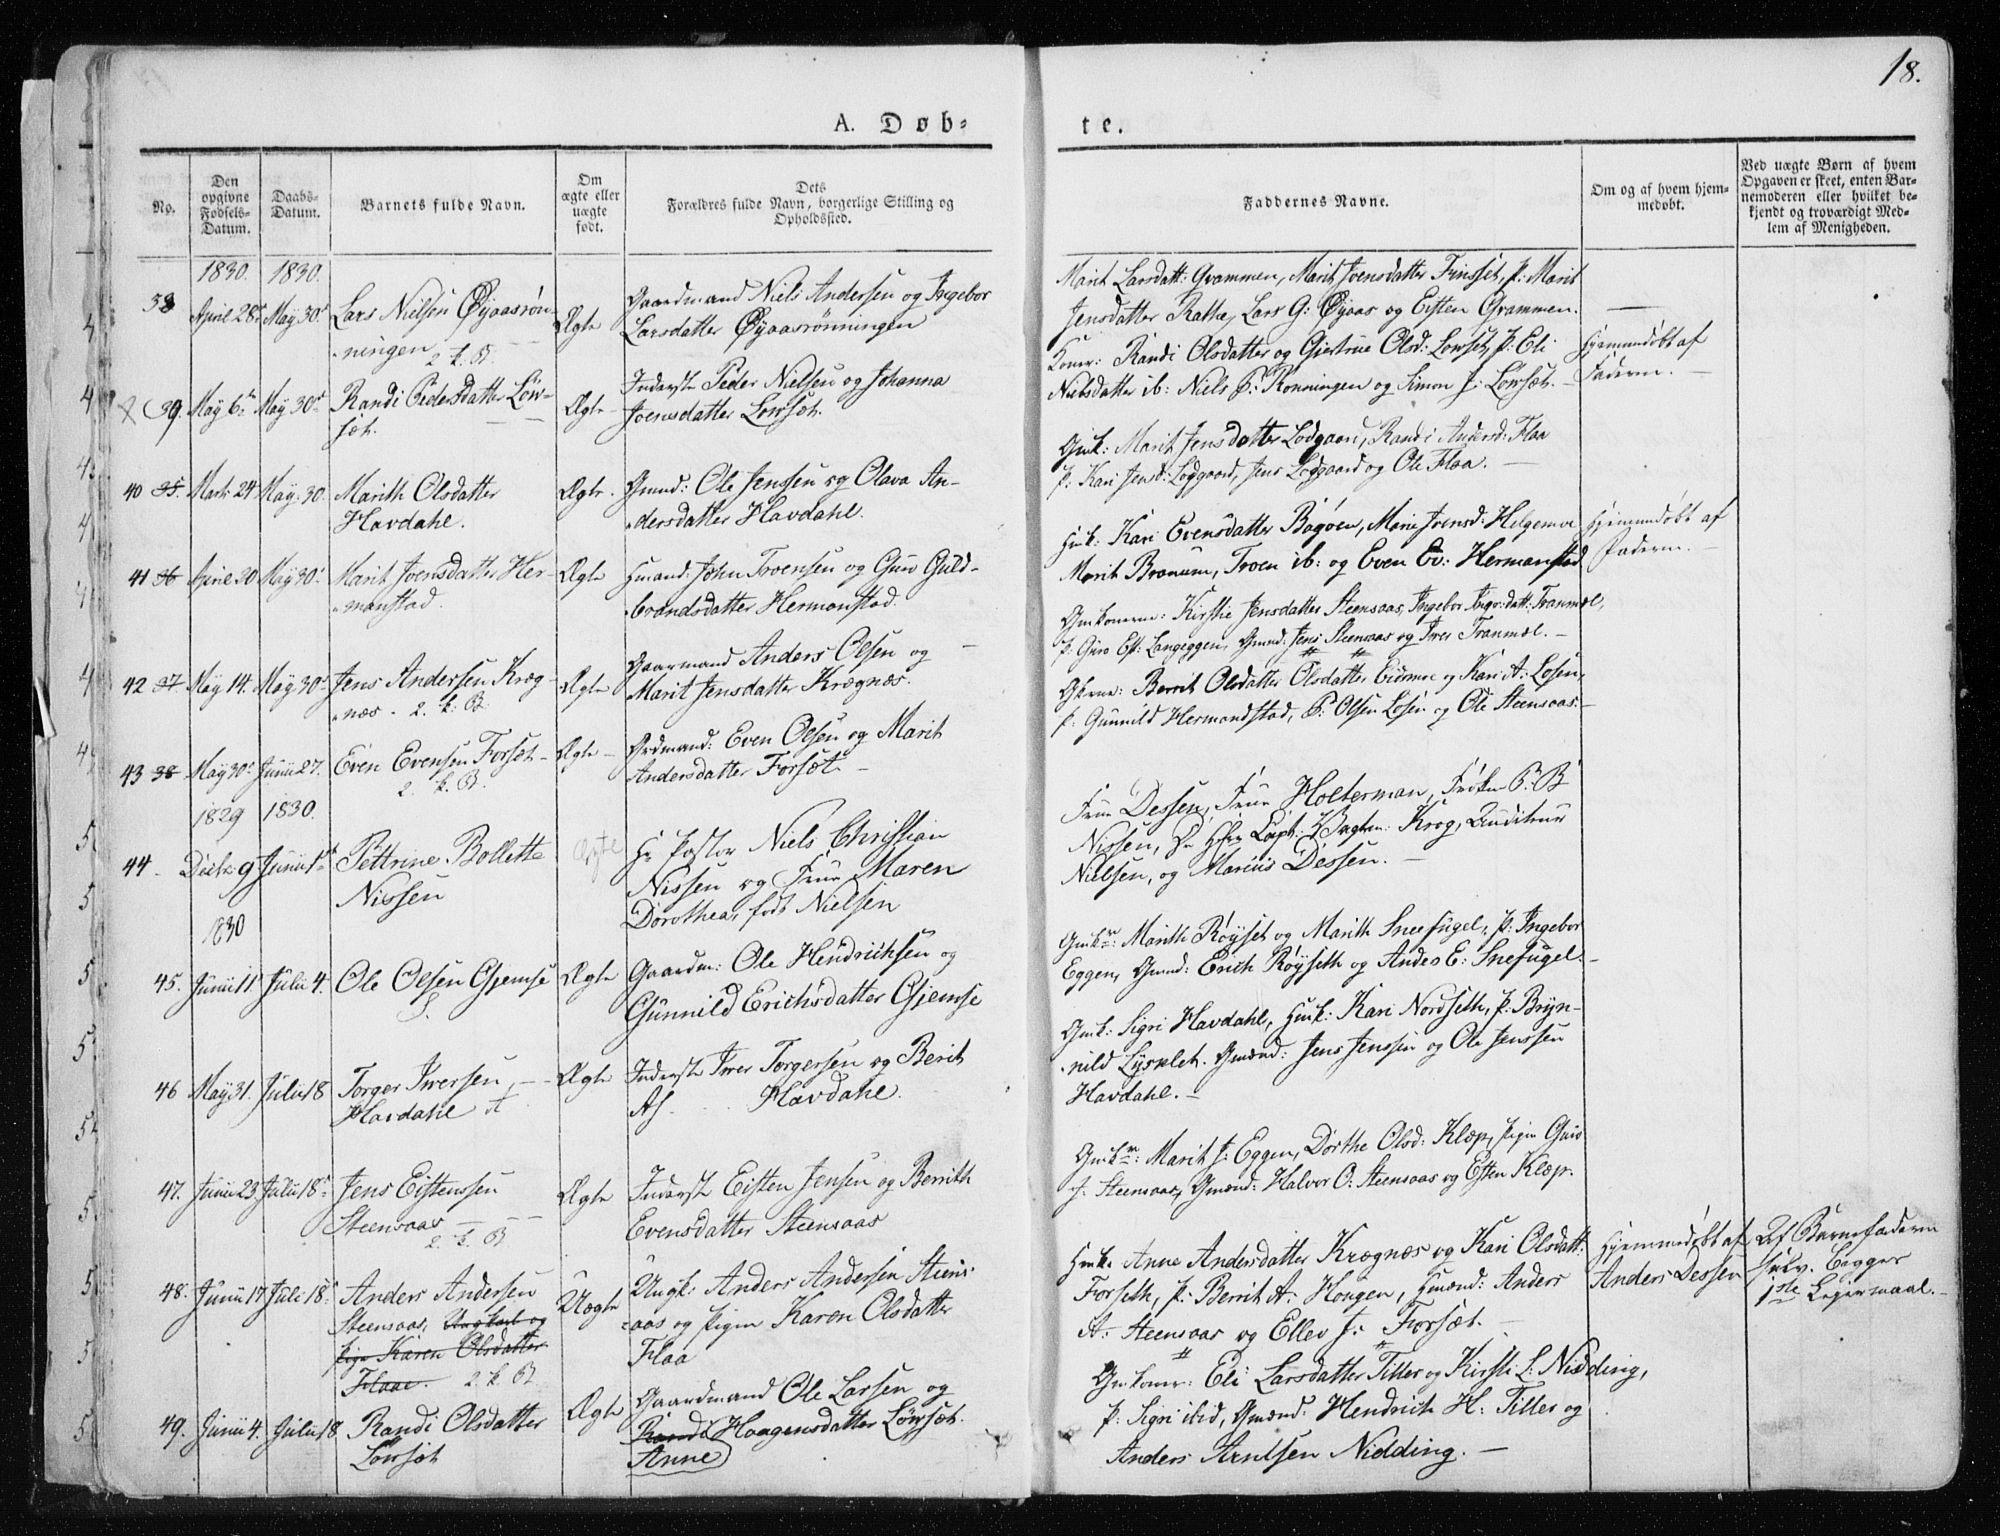 18.
A. Døb-
te.
No.
Den opgivne Fødsels-Datum.
Daabs-Datum.
Barnets fulde Navn.
Om ægte eller uægte født.
Dets Forældres fulde Navn, borgerlige Stilling og Opholdssted.
Faddernes Navne.
Om og af hvem hjemmedøbt.
Ved uægte Børn af hvem Opgaven er skeet, enten Barnemoderen eller hvilket bekjendt og troværdigt Medlem af Menigheden.
1830. 1830.
38 April 28 May 30 Lars Nielsen Øyaasrøn-
ningen 2. k. B.
Ægte
Gaardmand Niels Andersen og Ingebor
Larsdatter Øyaasrönningen
Marit Larsdatt: Grammen, Marit Joensdatter Finsset, p: Marit
Jensdatter Rathe, Lars G: Øyaas og Eisten Grammen.
39. May 6te May 30 Randi Pedersdatter Löv-
sæt.
Ægte
Inderste Peder Nielsen og Johanna
Joensdatter Lövsæt.
Koner: Randi Olsdatter og Giertrue Olsd: Lovset, p: Eli
Nielsdatter ib: Niels P: Ronningen og Simon J: Lövsæt.
Hjemmedöbt af
Faderen.
40 35. Marts 24 May 30. Marith Olsdatter
Havdahl.
Ægte.
Gmand: Ole Jenssen og Olava An-
dersdatter Havdahl.
Gmk: Marit Jensdatter Lodgaard, Randi Andersd: Flaa
p: Kari Jensd: Lodgaard, Jens Lodgaard og Ole Flaa.
41 36 April 30 May 30 Marit Joensdatter Her-
manstad.
Ægte
Hmand: John Troensen og Guro Guld-
brandsdatter Hermanstad.
Hmk: Kari Evensdatter Bagöen, Marie Joensd: Helgemoe
Marit Bronum, Troen ib: og Even Ev: Hermanstad
Hjemmedöbt af
Faderen.
42 37 May 14. May 30 Jens Andersen Kræg-
næs. 2. k. B.
Ægte
Gaarmand Anders Olsen og
Marit Jensdatter Krægnæs.
Gmkonerne: Kirstie Jensdatter Steensaas, Ingebor Ingv:datt: Tranmæl,
p: Guro Est: Langeggen, Gmænd: Jens Steensaas og Iver Tranmæl.
43 38 May 30 Junii 27. Even Evensen Forsæt
2. k. B.
Ægte
Ordmand: Even Olsen og Marit
Andersdatter Forsæt
Gkrne: Berrit Olsdatter Olsdatter Eidsmoe og Kari A: Losen,
p: Gunnild Hermandstad, P: Olsen Losen og Ole Steensaas.
1829 1830.
44. Decbr 9 Junii 1ste Pettrine Bollette
Nissen
Ægte
Hr Pastor Niels Christian
Nissen og Frue Maren
Dorothea, född Nielsen
Frue Dessen, Frue Holterman, Fröken P. B
Nissen, Dr Hrr Capt: Krog, Auditeur
Nielsen, og Marius Dessen.
1830
45. Junii 11 Julii 4. Ole Olsen Gjemse
Ægte
Gaardm: Ole Hendrichsen og
Gunnild Erichsdatter Gjemse
Gmkr: Marith Röyset og Marith Sneefugel, p: Ingebor
Eggen, Gmd: Erich Röyseth og Anders E: Snefugel.
46 May 31. Julii 18 Torger Iversen
Havdahl
Ægte
Inderste Iver Torgersen og Berit
Havdahl.
Gmk: Sigri Havdahl, Hmk: Kari Nordseth, p: Bryn-
nild Lysklet. Gmænd: Jens Jenssen og Ole Jenssen
Havdahl.
47. Junii 23 Julii 18 Jens Eistenssen
Steensaas 2. k. B
Ægte
Inderste Eisten Jensen og Berrith
Evensdatter Steensaas
Gmkr: Marit J: Eggen, Dorthe Olsd: Klæp, Pigen Guro
J. Steensaas, Gmænd: Halvor O: Steensaas og Esten Klæp.
48. Junii 17 Juli 18 Anders Andersen
Steensaas, Ungkarl og
pige Karen Olsdatter
Flaae. 2. k. B
Uægte
Ungk: Anders Andersen Steens-
aas og Pigen Karen Olsdatter
Flaa
Hmke Anne Andersdatter Krægnæs og Kari Olsdatt.
Forseth, p: Berrit A: Hougen, Hmænd: Anders
A: Steensaas og Ellev J: Forsæt.
Hjemmedöbt af
Anders Dessen
Af Barnefaderen
selv. Begges
1ste Leiermaal.
49. Junii 4. Julii 18 Randi Olsdatter
Lövsæt
Ægte
Gaardmand Ole Larsen og
Randi Haagensdatter Lövsæt.
Anne
Gmkoner: Eli Larsdatter Tiller og Kirsti L: Nidding,
p: Sigri ibid, Gmænd: Hendrich H: Tiller og
Anders Arntsen Nidding.